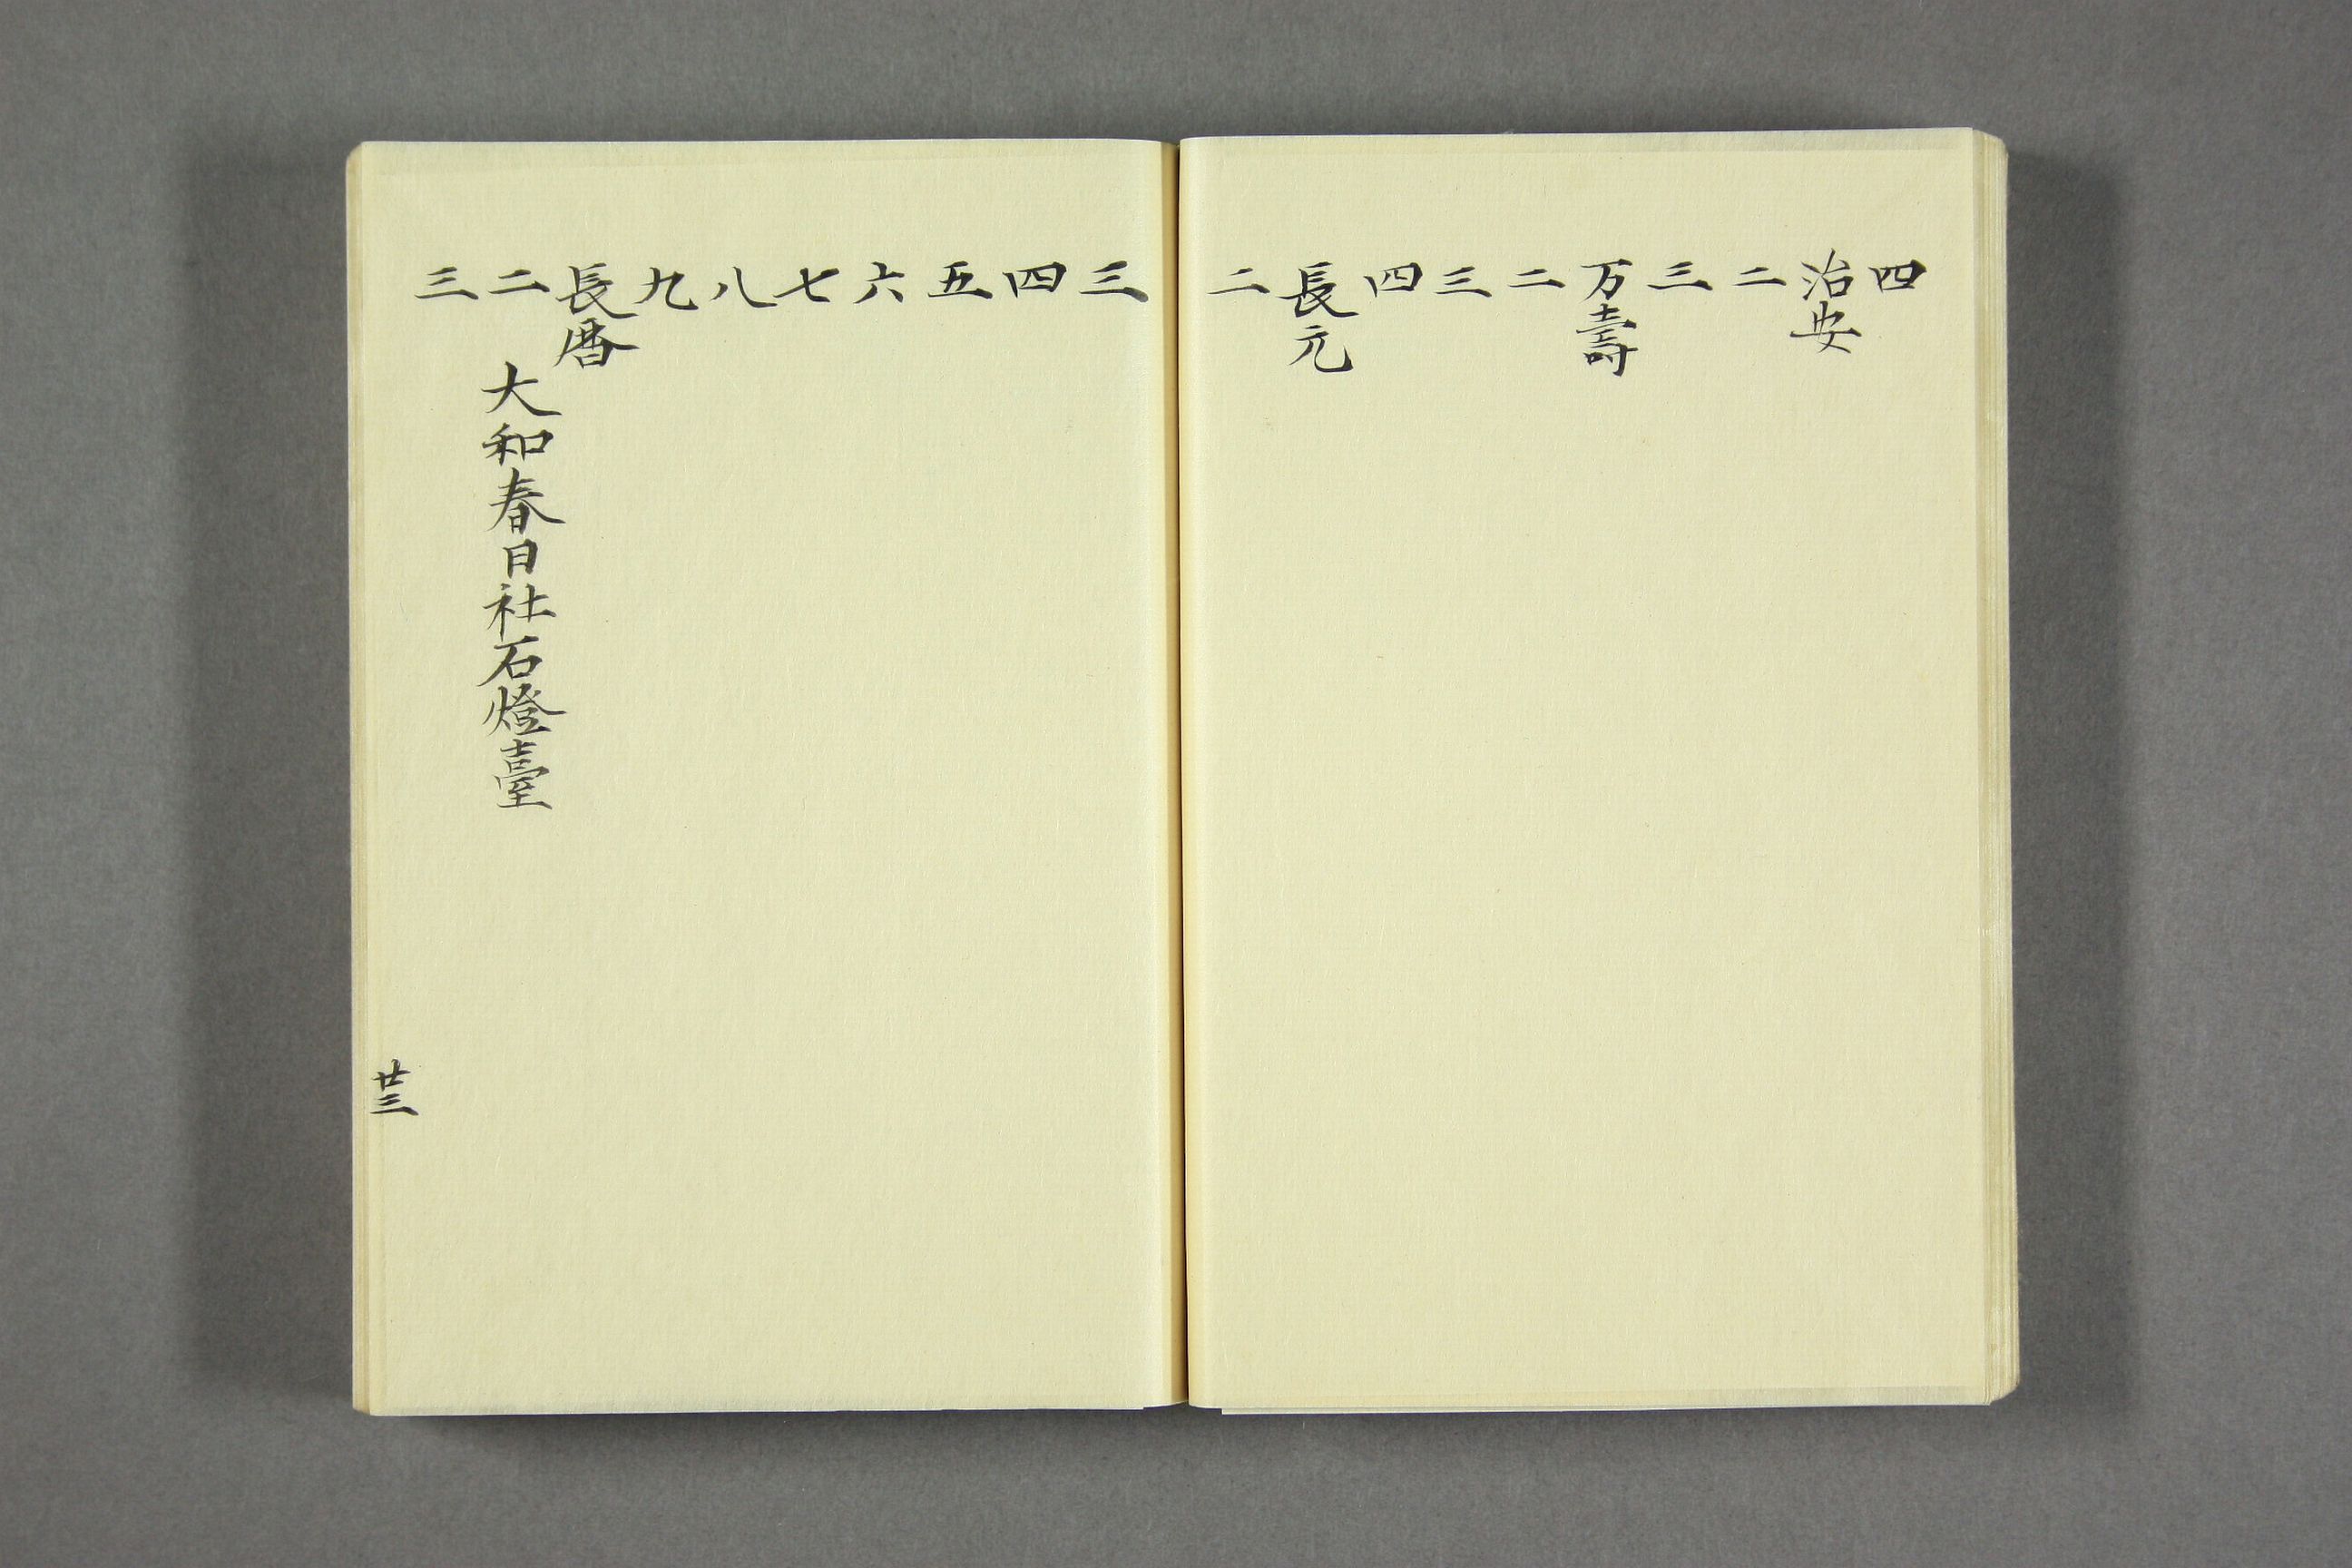 四
治安
二
三
万壽
二
三
四
長元
二
三
四
五
六
七
八
九
長暦
二 大和春日社石燈臺
三
廿三